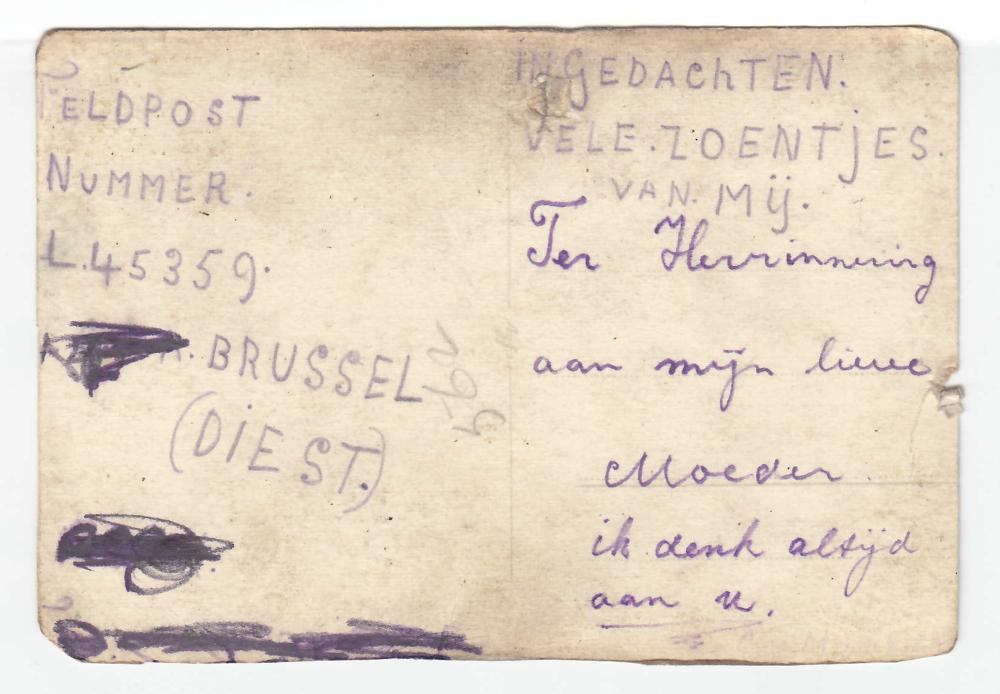 FELDPOST
NUMMER.
L.45359.
BRUSSEL
(DIEST.)
IN GEDACHTEN.
VELE.ZOENTJES.
VAN.MIJ.
Ter Herrinnering
aan mijn lieve
Moeder.
ik denk altijd
aan u.